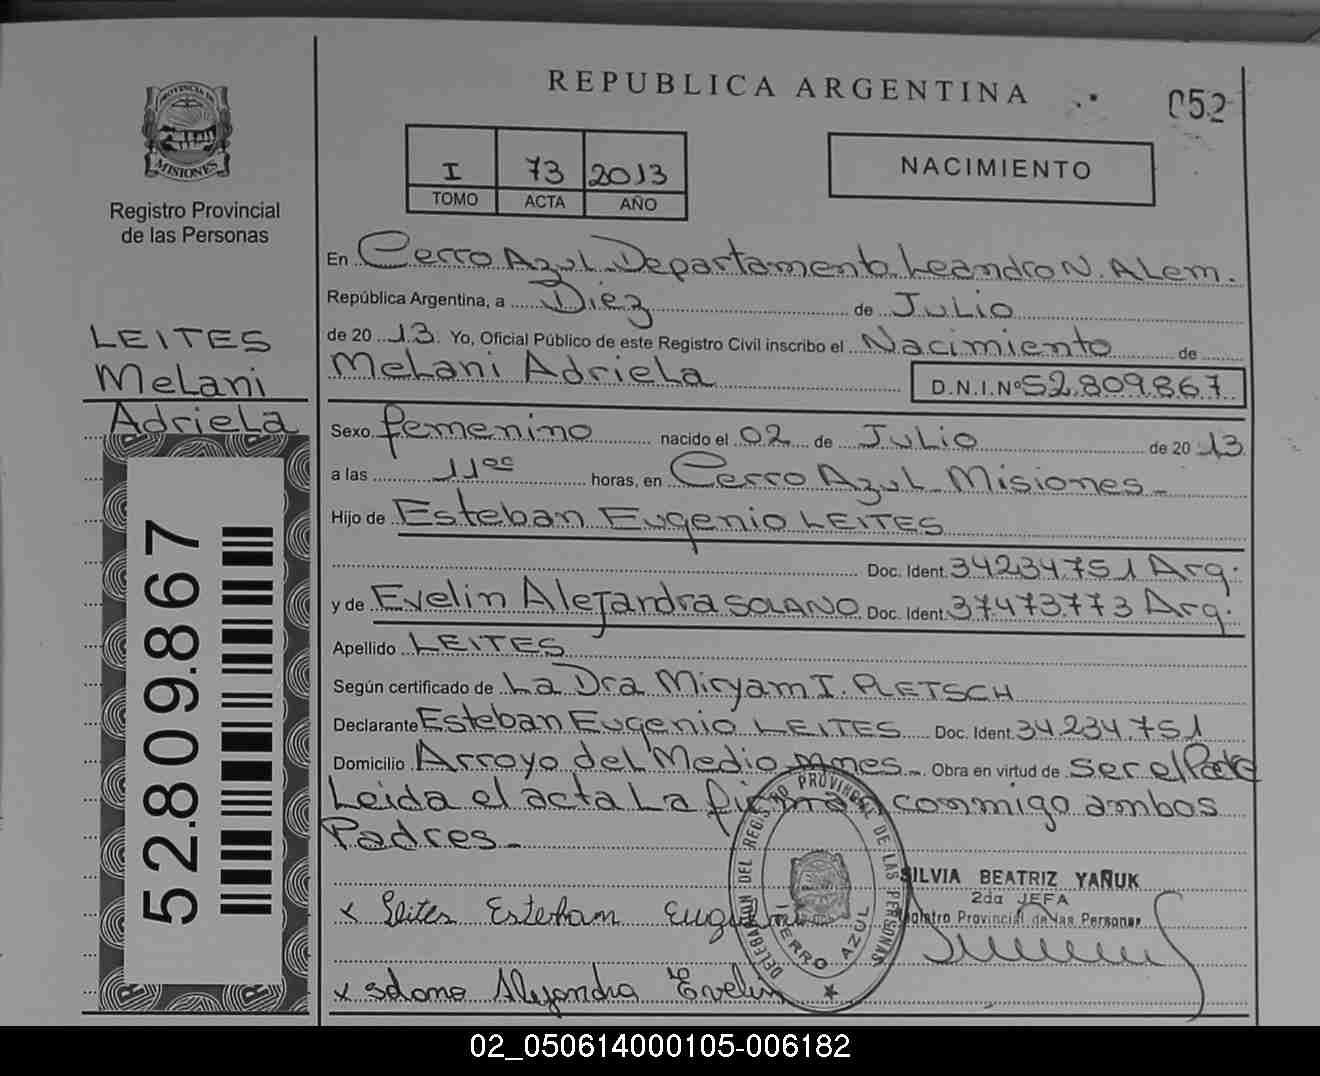 REPUBLICA ARGENTINA
052
PROVINCIA DE
MISIONES
Registro Provincial
de las Personas
I 73 2013
TOMO ACTA AÑO
NACIMIENTO
En Cerro Azul Departamento Leandro N. Alem.
República Argentina, a Diéz de Julio
de 2013. Yo, Oficial Público de este Registro Civil inscribo el Nacimiento de
Melani Adriela D.N.I.Nº52.809.867
LEITES
Melani
Adriela
Sexo femenino nacido el 02 de Julio de 2013
a las 11ºº horas, en Cerro Azul Misiones
Hijo de Esteban Eugenio LEITES
Doc. Ident. 34234751 Arg.
y de Evelin Alejandra SOLANO Doc. Ident. 37473773 Arg.
Apellido LEITES
Según certificado de La Dra Miryam I. PLETSCH
Declarante Esteban Eugenio LEITES Doc. Ident. 34.234.751
Domicilio Arroyo del Medio Mnes Obra en virtud de ser el Padre
Leida el acta La firman conmigo ambos
Padres
52.809.867
DELEGACION DEL REGISTRO PROVINCIAL DE LAS PERSONAS
CERRO AZUL
SILVIA BEATRIZ YAÑUK
2da JEFA
Registro Provincial de las Personas
x Leites Esteban Eugenio
x Solano Alejandra Evelin
02_050614000105-006182